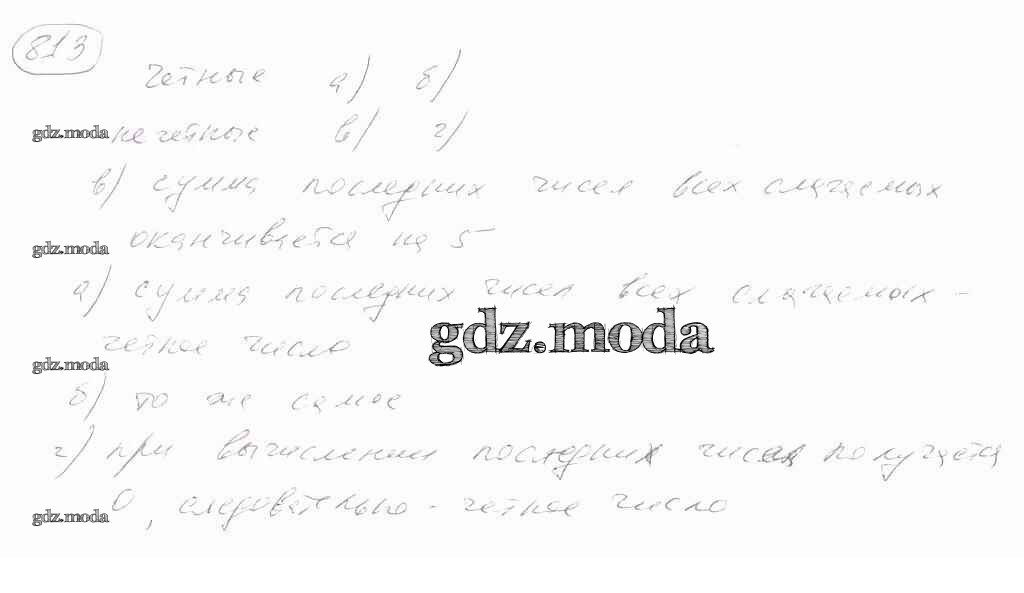 813
четные а) б)
gdz.moda нечетные в) г)
в) сумма последних чисел всех слагаемых
gdz.moda оканчивается на 5
а) сумма последних чисел всех слагаемых -
gdz.moda
четное число
gdz.moda
б) то же самое
г) при вычислении последних чисел получается
gdz.moda 0, следовательно - четное число